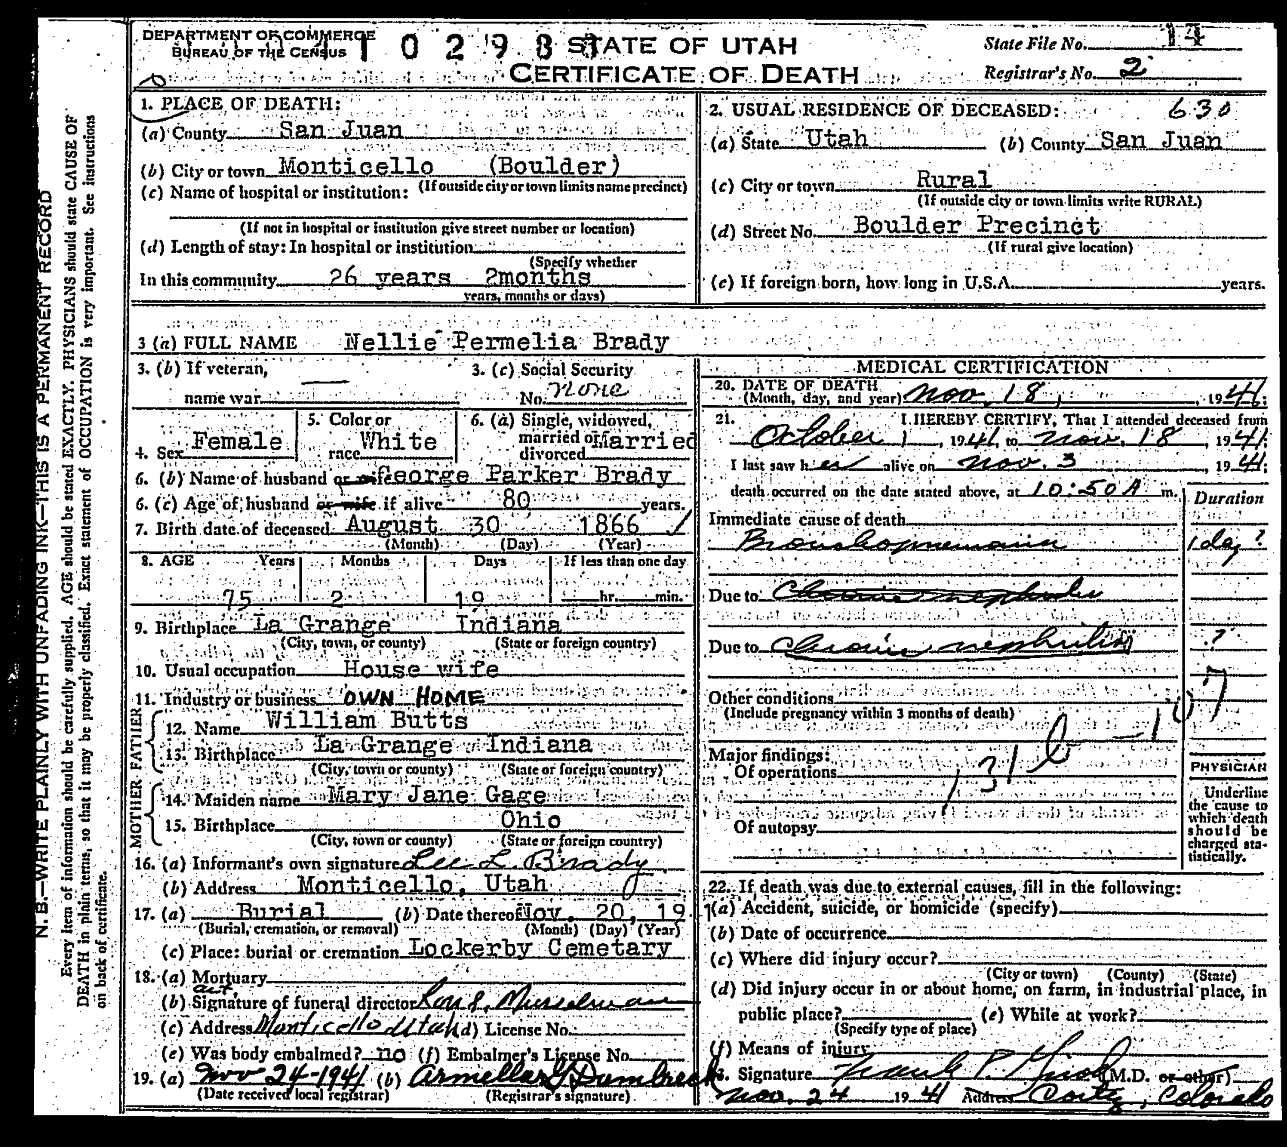 DEPARTMENT OF COMMERCE
BUREAU OF THE CENSUS
STATE OF UTAH
CERTIFICATE OF DEATH
State File No. 14
Registrar's No. 2
N. B.—WRITE PLAINLY WITH UNFADING INK—THIS IS A PERMANENT RECORD
Every item of information should be carefully supplied. AGE should be stated EXACTLY. PHYSICIANS should state CAUSE OF
DEATH in plain terms, so that it may be properly classified. Exact statement of OCCUPATION is very important. See instructions
on back of certificate.
1. PLACE OF DEATH:
(a) County San Juan
(b) City or town Monticello (Boulder)
(If outside city or town limits name precinct)
(c) Name of hospital or institution:
(If not in hospital or institution give street number or location)
(d) Length of stay: In hospital or institution
(Specify whether
In this community 26 years 2months
years, months or days)
2. USUAL RESIDENCE OF DECEASED: 630
(a) State Utah (b) County San Juan
(c) City or town Rural
(If outside city or town limits write RURAL)
(d) Street No. Boulder Precinct
(If rural give location)
(e) If foreign born, how long in U.S.A. years.
3 (a) FULL NAME Nellie Permelia Brady
3. (b) If veteran,
name war
3. (c) Social Security
No. none
4. Sex Female
5. Color or
race White
6. (a) Single, widowed,
married or Married
divorced
6. (b) Name of husband or wife George Parker Brady
6. (c) Age of husband or wife if alive 80 years.
7. Birth date of deceased August 30 1866
(Month) (Day) (Year)
8. AGE Years Months Days If less than one day
75 2 19 hr. min.
9. Birthplace La Grange Indiana
(City, town, or county) (State or foreign country)
10. Usual occupation House wife
11. Industry or business OWN HOME
FATHER
12. Name William Butts
13. Birthplace La Grange Indiana
(City, town or county) (State or foreign country)
MOTHER
14. Maiden name Mary Jane Gage
15. Birthplace Ohio
(City, town or county) (State or foreign country)
16. (a) Informant's own signature Lee L. Brady
(b) Address Monticello, Utah
17. (a) Burial (b) Date thereof Nov. 20, 19
(Burial, cremation, or removal) (Month) (Day) (Year)
(c) Place: burial or cremation Lockerby Cemetary
18. (a) Mortuary
act.
(b) Signature of funeral director Musselman
(c) Address Monticello Utah (d) License No.
(e) Was body embalmed? no (f) Embalmer's License No.
19. (a) Nov 24-1941 (b)
(Date received local registrar) (Registrar's signature)
MEDICAL CERTIFICATION
20. DATE OF DEATH
(Month, day, and year) Nov. 18, 1941.
21. I HEREBY CERTIFY, That I attended deceased from
October 1, 1941 to Nov. 18 1941
I last saw her alive on Nov. 3, 1941;
death occurred on the date stated above, at 10:50A m.
Duration
Immediate cause of death
Bronchopneumonia 1 day ?
Due to Chronic nephritis
Due to Chronic nephritis ?
Other conditions
(Include pregnancy within 3 months of death)
131 b - 107
Major findings:
Of operations
Of autopsy
PHYSICIAN
Underline
the cause to
which death
should be
charged sta-
tistically.
22. If death was due to external causes, fill in the following:
(a) Accident, suicide, or homicide (specify)
(b) Date of occurrence
(c) Where did injury occur?
(City or town) (County) (State)
(d) Did injury occur in or about home, on farm, in industrial place, in
public place? (e) While at work?
(Specify type of place)
(f) Means of injury
Signature Frank P. (M.D. or other)
Nov. 24 1941 Address Cortez, Colorado